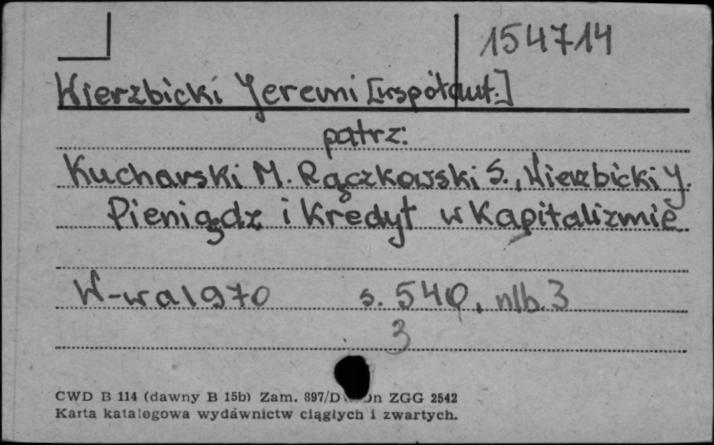 154714
Wierzbicki Jeremi [współaut.]
patrz:
Kucharski M. Rączkowski S., Wierzbicki J.
Pieniądz i Kredyt w Kapitalizmie
W-wa 1970 s. 540, nlb. 3
3
CWD B 114 (dawny B 15b) Zam. 897/D ZGG 2542
Karta katalogowa wydawnictw ciągłych i zwartych.